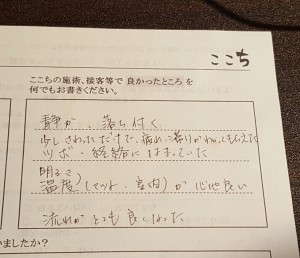 ここち
ここちの施術、接客等で 良かったところ を
何でもお書きください。
静か、落ち付く
少しさわっただけで、痛れ、凝りがわかってもらえた
ツボ・経絡にはまっていた
明るさ
温度(ベッド、室内)が心地良い
流れがとても良くなった
いましたか?